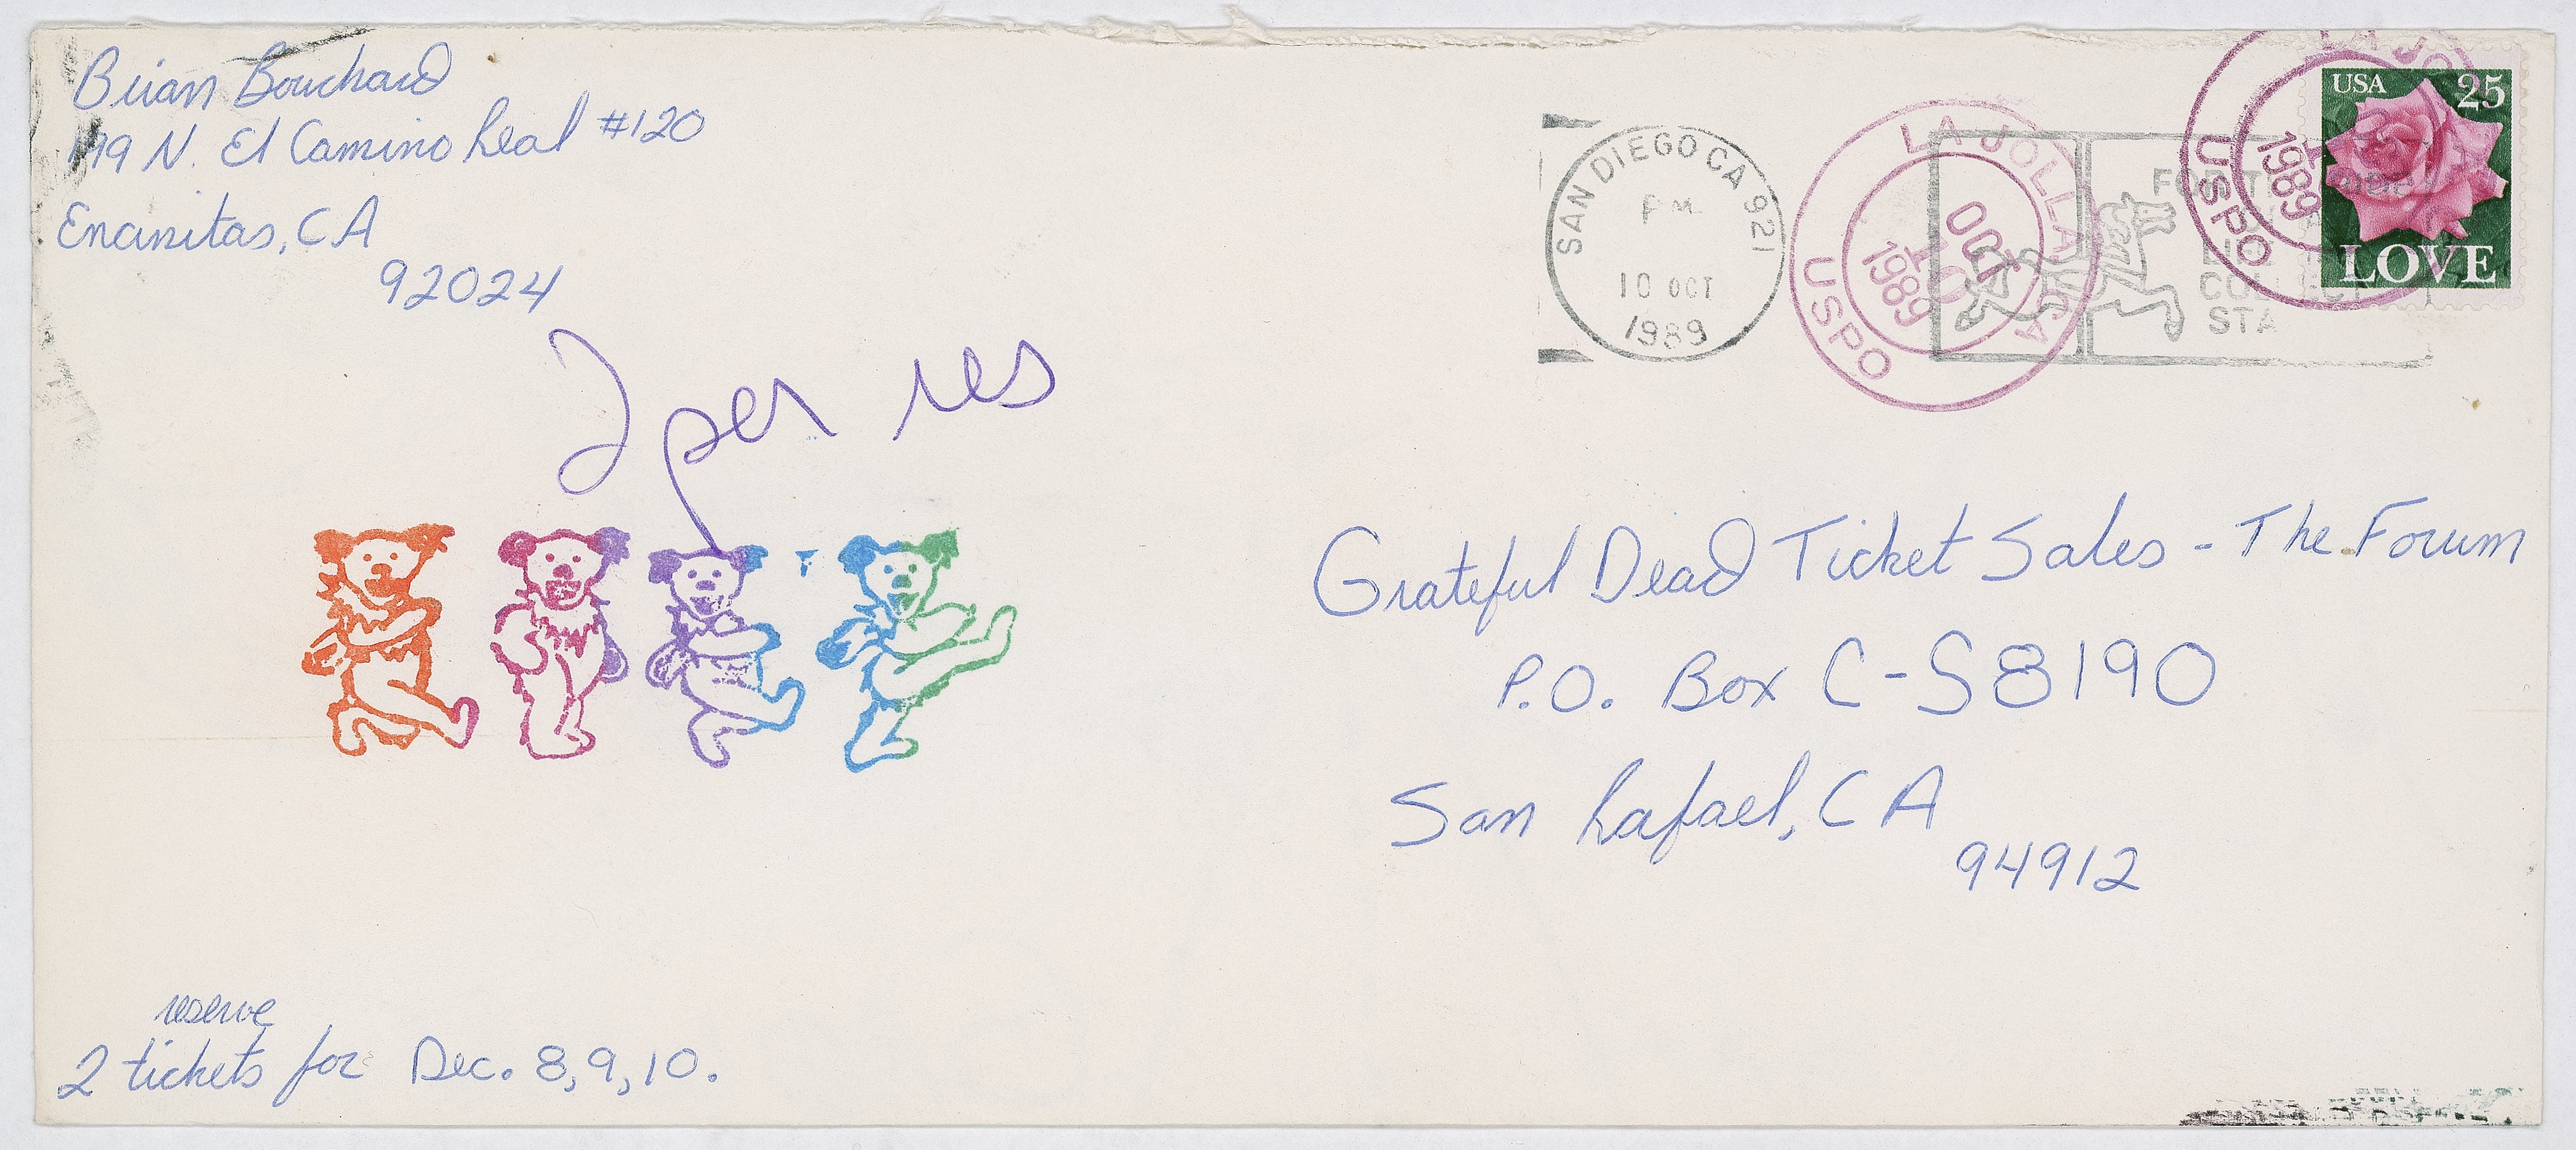 Brian Bouchard
179 N. El Camino Real #120
Encinitas, CA
92024
SAN DIEGO CA 921
PM
10 OCT
1989
LA JOLLA CA
OCT
10
1989
USPO
LA JO
1989
USPO
USA 25
LOVE
2 per res
Grateful Dead Ticket Sales - The Forum
P.O. Box C-S8190
San Rafael, CA
94912
reserve
2 tickets for Dec. 8, 9, 10.